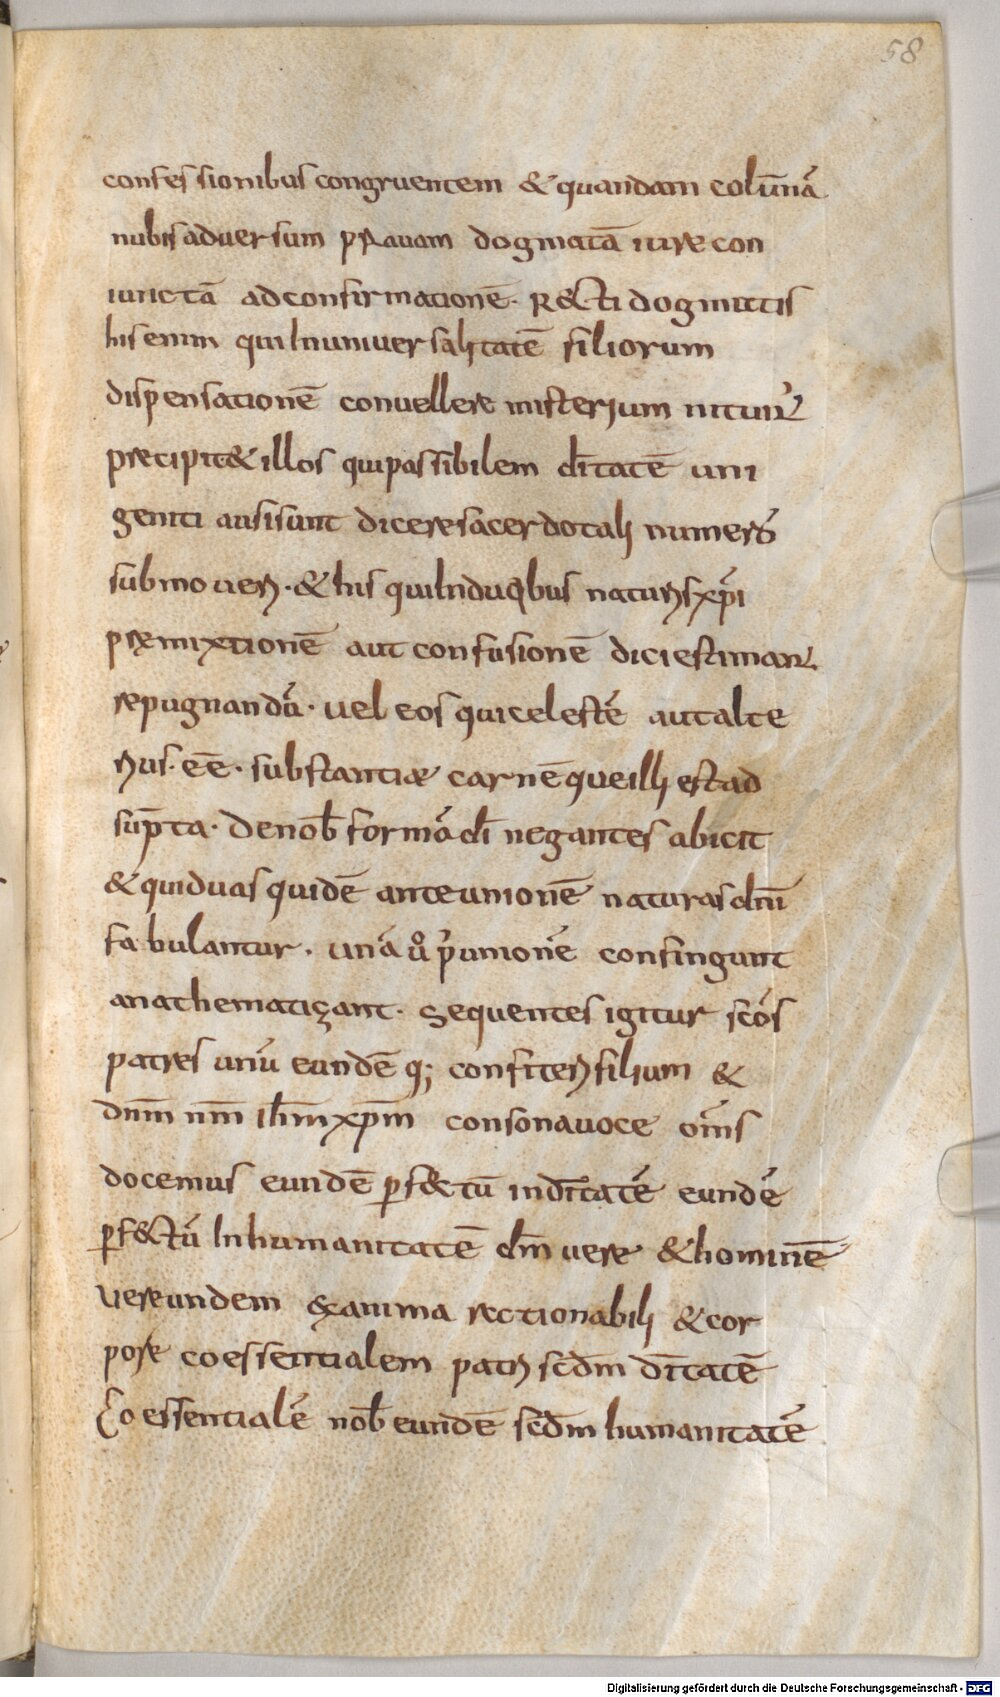 58
confessionibus congruentem & quandam colūnā
nubis adversum prauam dogmatā iure con
iunctā ad confirmationē. R&ti dogmatis
his enim qui In univer salitatē filiorum
dispensationē convellere misterium nitunt̄
precipit & illos qui passibilem d̄itatē uni
geniti ausi sunt dicere sacerdotali numero
submoveri. & his qui In duabus naturis xp̄i
permixtionē aut confusionē dici estimant
repugnandū. vel eos qui celestē aut alte
rius. eē. substantiæ carnē que illi est ad
sup̄ta. De nob̄ formā d̄i negantes abicit
& qui duas quidē ante unionē naturas dn̄i
fabulantur. unā ů p̄ unionē confingunt
anathematiçant. Sequentes igitur sc̄os
patres unū eundē q; confiteri filium &
dn̄m nr̄m ih̄m xp̄m consona voce om̄s
docemus eundē p̄f&tū in d̄itatē eundē
p̄f&tū In humanitatē d̄m vere & hominē
vere undem ex anima rectionabili & cor
pore coessentialem patri sc̄dm d̄itatē
Coessentialē nob̄ eundē sc̄dm humanitatē
Digitalisierung gefördert durch die Deutsche Forschungsgemeinschaft - DFG